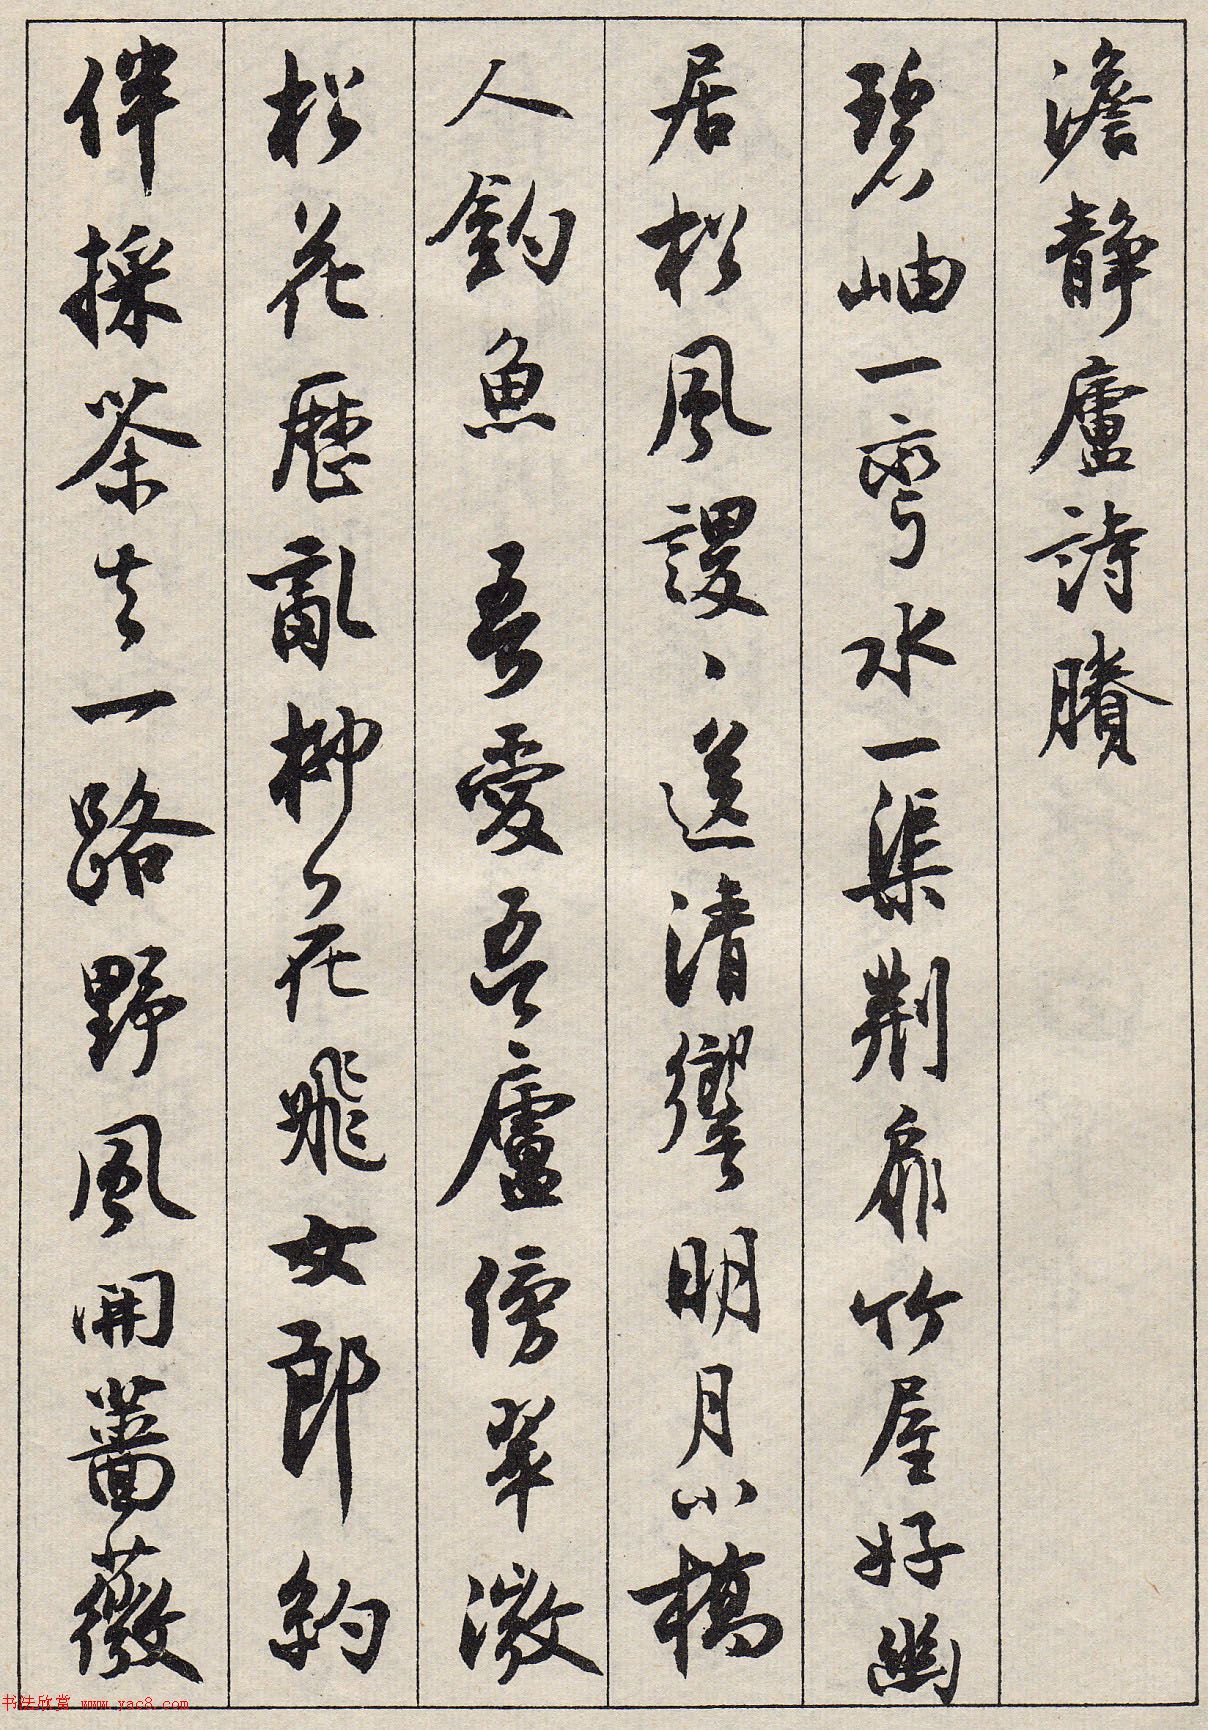 澹靜廬詩賸
碧岫一彎水一渠荆扉竹屋好幽
居松風謖、送清響明月小橋
人釣魚　吾愛吾廬傍翠微
松花歷亂柳花飛女郎約
伴採茶去一路野風開薔薇
书法欣赏 www.yac8.com